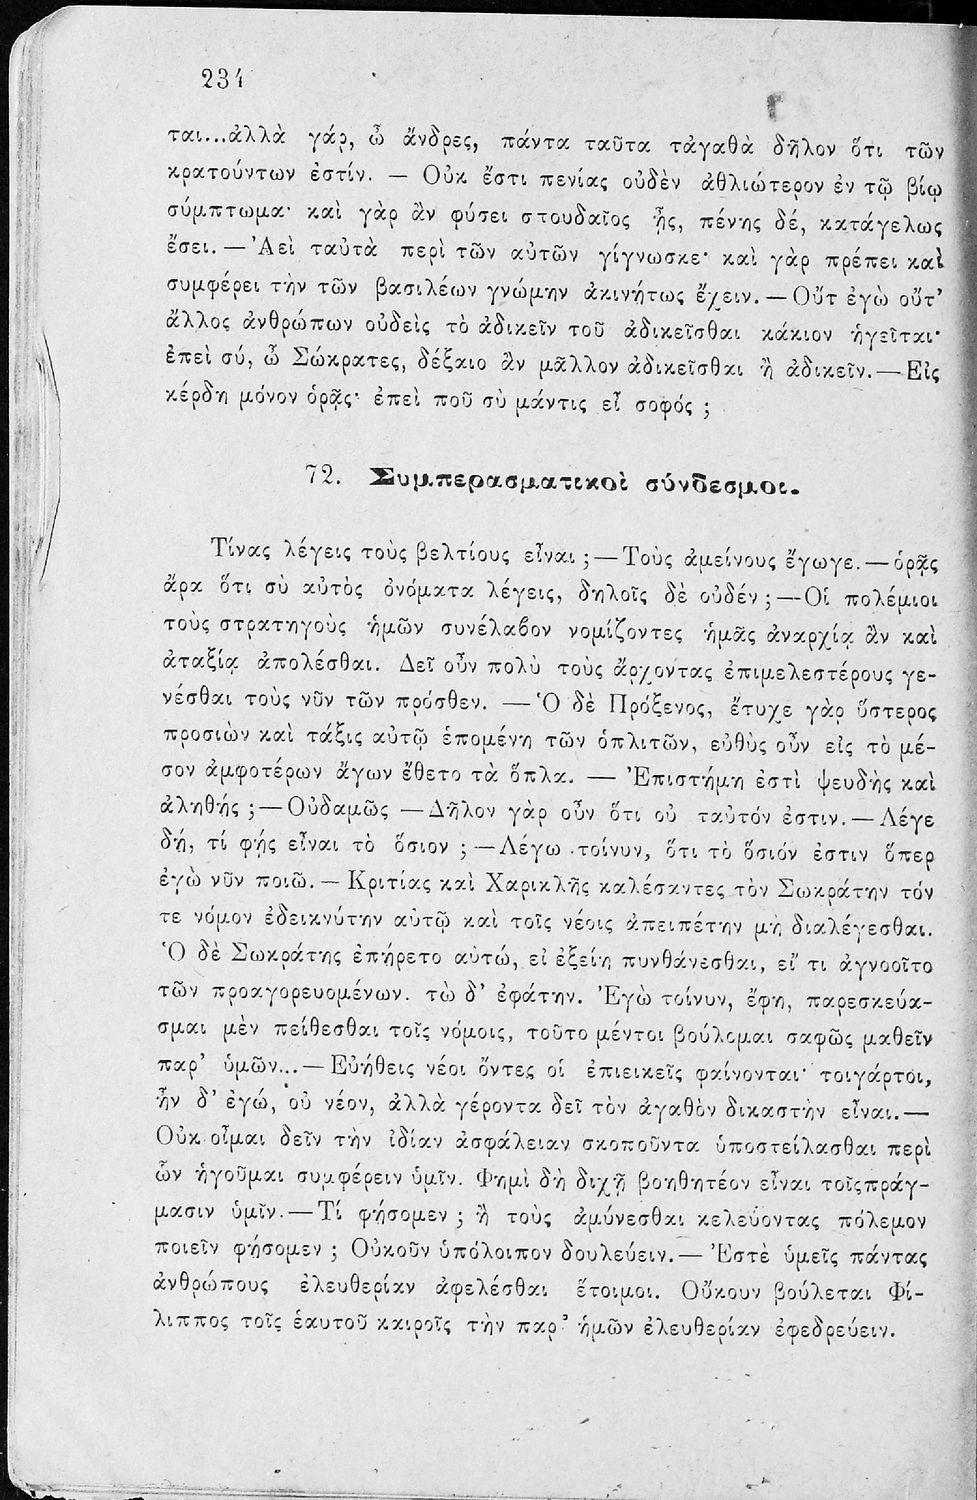 234
ται...ἀλλὰ γάρ, ὦ ἄνδρες, πάντα ταῦτα τἀγαθὰ δῆλον ὅτι τῶν
κρατούντων ἐστίν. — Οὐκ ἔστι πενίας οὐδὲν ἀθλιώτερον ἐν τῷ βίῳ
σύμπτωμα· καὶ γὰρ ἂν φύσει σπουδαῖος ᾖς, πένης δέ, κατάγελως
ἔσει. — Ἀεὶ ταὐτὰ περὶ τῶν αὐτῶν γίγνωσκε· καὶ γὰρ πρέπει καὶ
συμφέρει τὴν τῶν βασιλέων γνώμην ἀκινήτως ἔχειν. — Οὔτ ἐγὼ οὔτ’
ἄλλος ἀνθρώπων οὐδεὶς τὸ ἀδικεῖν τοῦ ἀδικεῖσθαι κάκιον ἡγεῖται·
ἐπεὶ σύ, ὦ Σώκρατες, δέξαιο ἂν μᾶλλον ἀδικεῖσθαι ἢ ἀδικεῖν. — Εἰς
κέρδη μόνον ὁρᾷς· ἐπεὶ ποῦ σὺ μάντις εἶ σοφός ;
72. Συμπερασματικοὶ σύνδεσμοι.
Τίνας λέγεις τοὺς βελτίους εἶναι ; — Τοὺς ἀμείνους ἔγωγε. — ὁρᾷς
ἄρα ὅτι σὺ αὐτὸς ὀνόματα λέγεις, δηλοῖς δὲ οὐδέν ; — Οἱ πολέμιοι
τοὺς στρατηγοὺς ἡμῶν συνέλαβον νομίζοντες ἡμᾶς ἀναρχίᾳ ἂν καὶ
ἀταξίᾳ ἀπολέσθαι. Δεῖ οὖν πολὺ τοὺς ἄρχοντας ἐπιμελεστέρους γε-
νέσθαι τοὺς νῦν τῶν πρόσθεν. — Ὁ δὲ Πρόξενος, ἔτυχε γὰρ ὕστερος
προσιὼν καὶ τάξις αὐτῷ ἑπομένη τῶν ὁπλιτῶν, εὐθὺς οὖν εἰς τὸ μέ-
σον ἀμφοτέρων ἄγων ἔθετο τὰ ὅπλα. — Ἐπιστήμη ἐστὶ ψευδὴς καὶ
ἀληθής ; — Οὐδαμῶς — Δῆλον γὰρ οὖν ὅτι οὐ ταὐτόν ἐστιν. — Λέγε
δή, τί φῄς εἶναι τὸ ὅσιον ; — Λέγω τοίνυν, ὅτι τὸ ὅσιόν ἐστιν ὅπερ
ἐγὼ νῦν ποιῶ. — Κριτίας καὶ Χαρικλῆς καλέσαντες τὸν Σωκράτην τόν
τε νόμον ἐδεικνύτην αὐτῷ καὶ τοῖς νέοις ἀπειπέτην μὴ διαλέγεσθαι.
Ὁ δὲ Σωκράτης ἐπήρετο αὐτώ, εἰ ἐξείη πυνθάνεσθαι, εἴ τι ἀγνοοῖτο
τῶν προαγορευομένων. τὼ δ’ ἐφάτην. Ἐγὼ τοίνυν, ἔφη, παρεσκεύα-
σμαι μὲν πείθεσθαι τοῖς νόμοις, τοῦτο μέντοι βούλομαι σαφῶς μαθεῖν
παρ’ ὑμῶν... — Εὐήθεις νέοι ὄντες οἱ ἐπιεικεῖς φαίνονται· τοιγάρτοι,
ἦν δ’ ἐγώ, οὐ νέον, ἀλλὰ γέροντα δεῖ τὸν ἀγαθὸν δικαστὴν εἶναι. —
Οὐκ οἶμαι δεῖν τὴν ἰδίαν ἀσφάλειαν σκοποῦντα ὑποστείλασθαι περὶ
ὧν ἡγοῦμαι συμφέρειν ὑμῖν. Φημὶ δὴ διχῇ βοηθητέον εἶναι τοῖςπράγ-
μασιν ὑμῖν. — Τί φήσομεν ; ἢ τοὺς ἀμύνεσθαι κελεύοντας πόλεμον
ποιεῖν φήσομεν ; Οὐκοῦν ὑπόλοιπον δουλεύειν. — Ἐστὲ ὑμεῖς πάντας
ἀνθρώπους ἐλευθερίαν ἀφελέσθαι ἕτοιμοι. Οὔκουν βούλεται Φί-
λιππος τοῖς ἑαυτοῦ καιροῖς τὴν παρ’ ἡμῶν ἐλευθερίαν ἐφεδρεύειν.